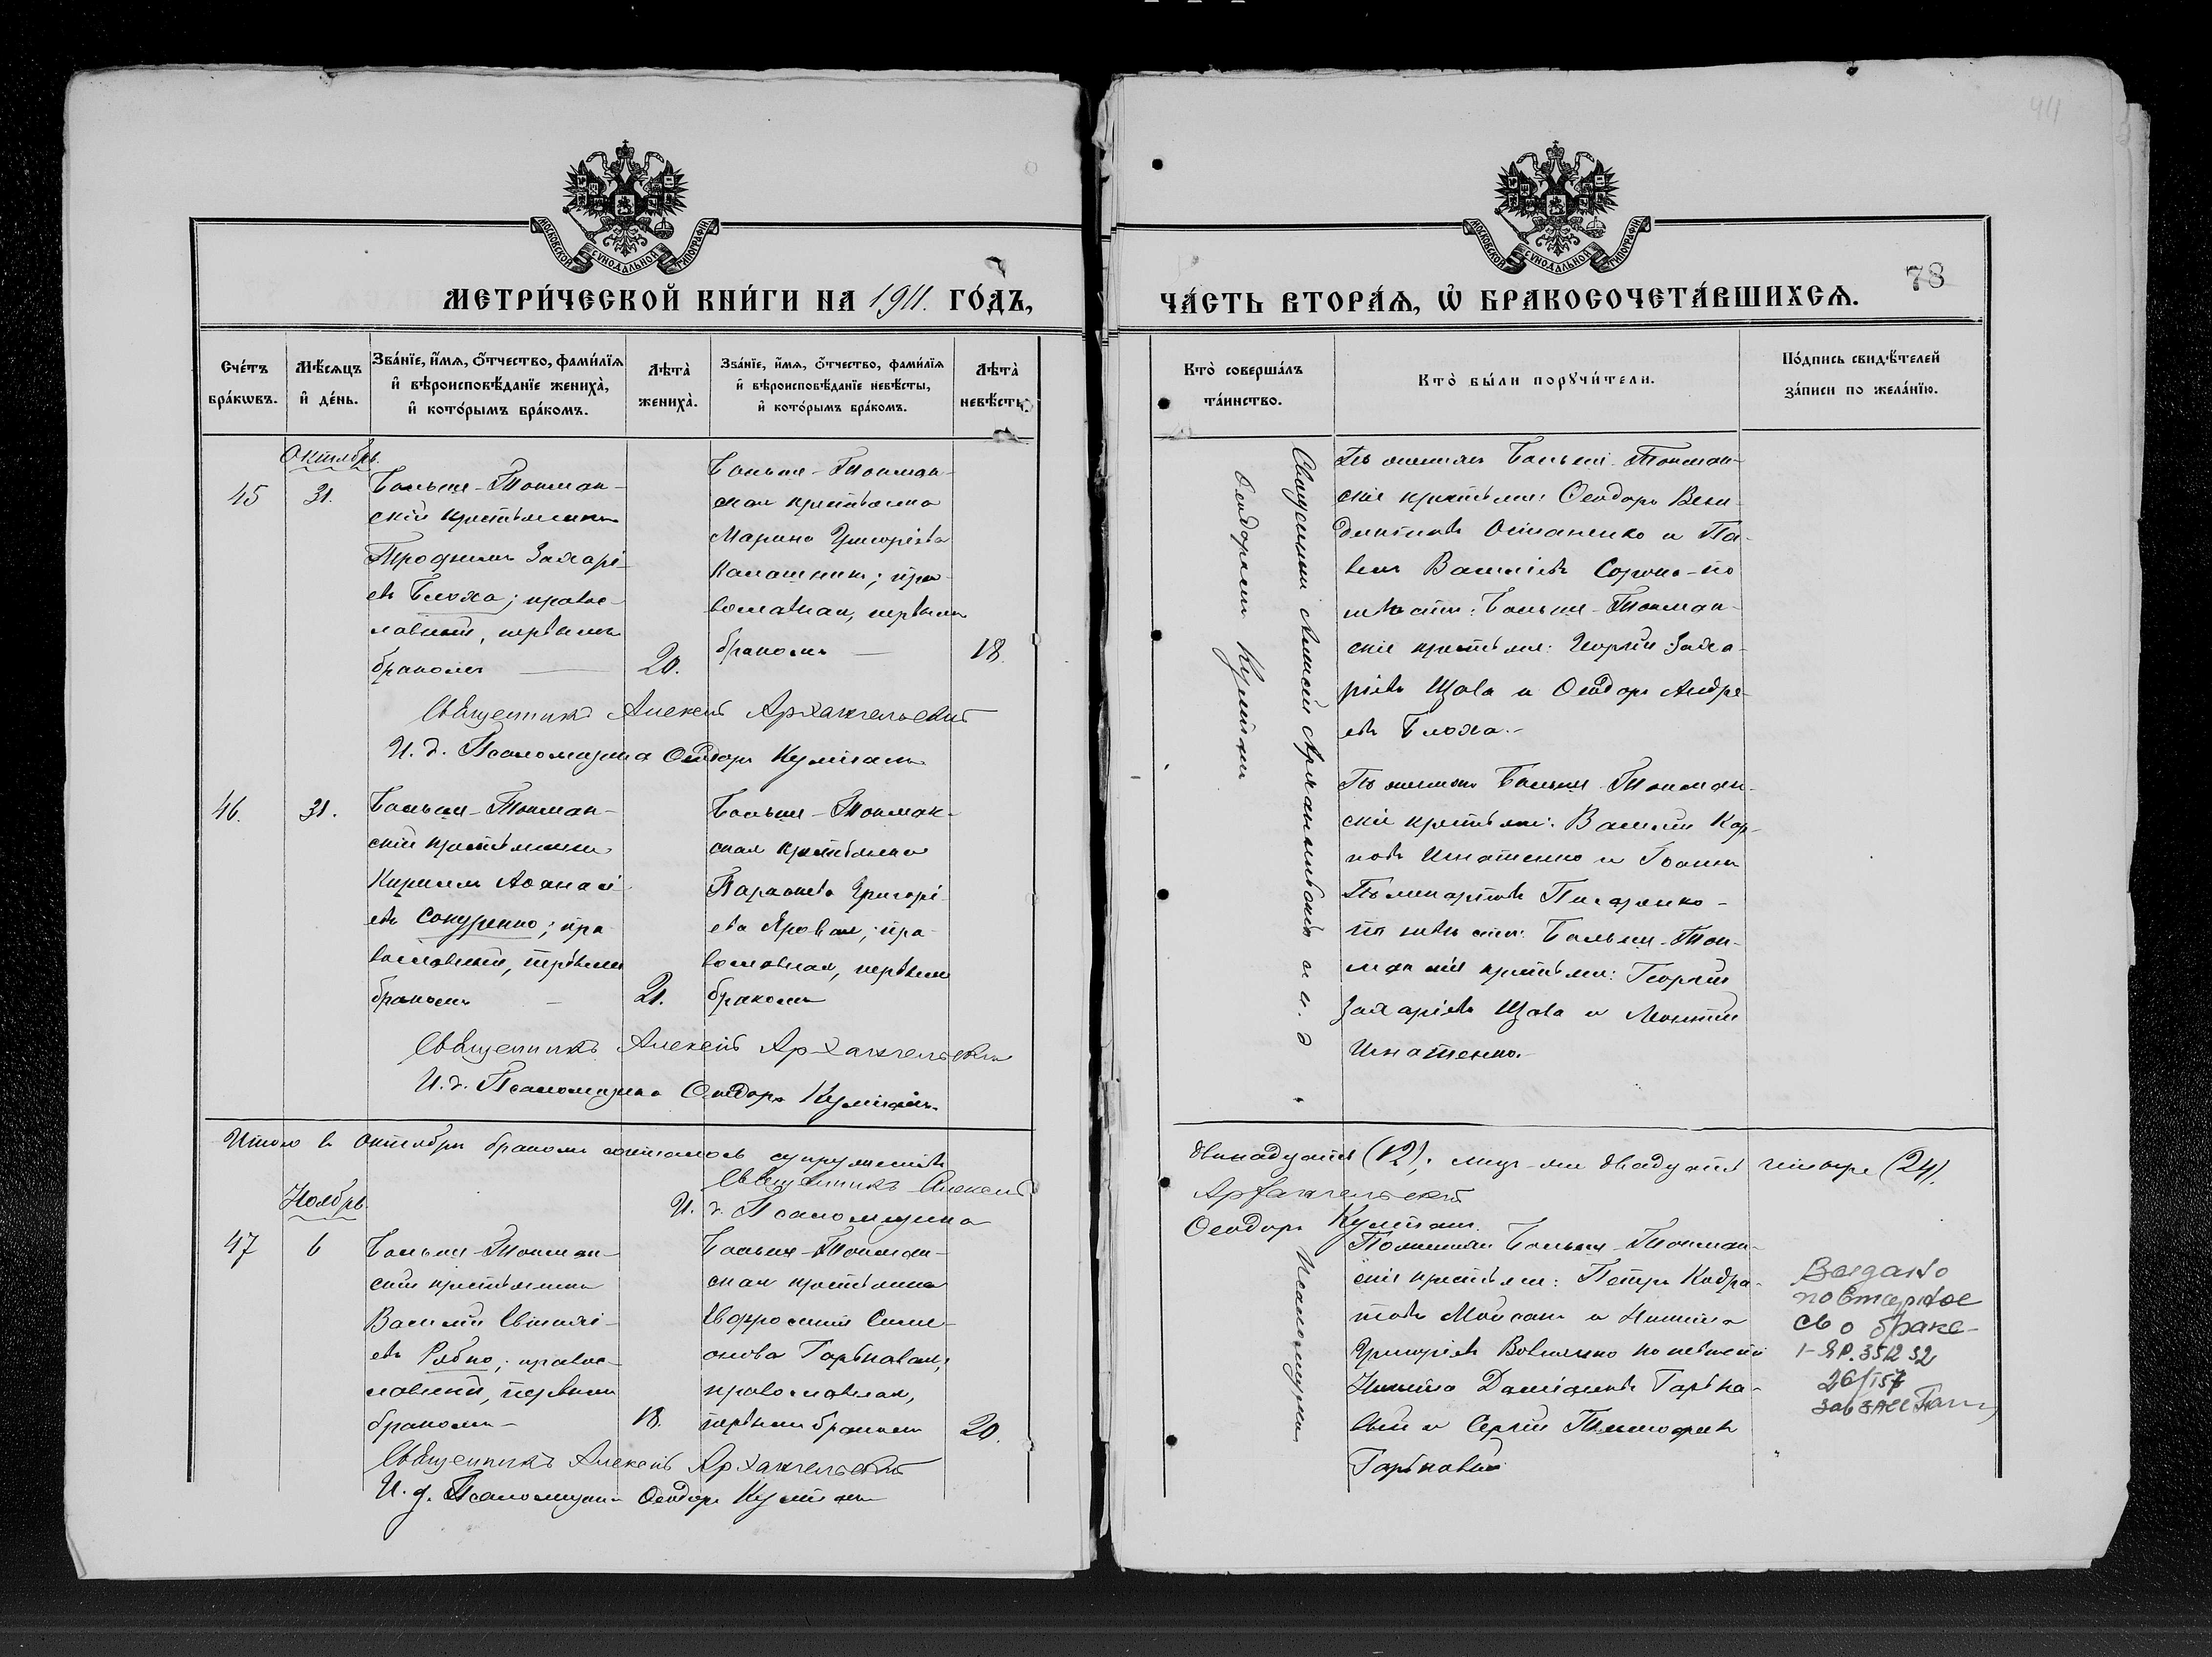 МЕТРИ́ЧЕСКОЙ КНИ́ГИ НА 1911. ГО́ДЪ,
Сче́тъ бра́кѡвъ.
Мѣ́сѧцъ и҆ де́нь.
Зва́нїе, и҆́мѧ, ѻ҆́тчество, фами́лїѧ и҆ вѣроисповѣ́данїе жениха̀, и҆ кото́рымъ бра́комъ.
Лѣта̀ жениха̀.
Зва́нїе, и҆́мѧ, ѻ҆́тчество, фами́лїѧ и҆ вѣроисповѣ́данїе невѣ́сты, и҆ кото́рымъ бра́комъ.
Лѣта̀ невѣ́сты.
Октябрь.
45
31.
Больше-Токмак-
скій крестьянинъ
Трофимъ Захарі-
евъ Блоха; правос-
лавный, первымъ
бракомъ
20.
Больше-Токмак-
ская крестьянка
Марина Григорьева
Калашник; пра-
вославная, первымъ
бракомъ
18.
Священникъ Алексей Архангельскій
И. д. Псаломщика Ѳеодоръ
46.
31.
Больше-Токмак-
скій крестьянинъ
Кириллъ Аѳанасі-
евъ Сокуренко; пра-
вославный, первымъ
бракомъ
21.
Больше-Токмак-
ская крестьянка
Параскева Григорі-
ева Яровая; пра-
вославная, первымъ
бракомъ
Священникъ Алексей Архангельскій
И. д. Псаломщика Ѳеодоръ
Итого въ октябрѣ бракомъ сочеталось супружествъ
Священникъ Алексей
И. д. Псаломщика
Ноябрь.
47
6
Больше-Токмак-
скій крестьянинъ
Василій
евъ Рябко; правос-
лавный, первымъ
бракомъ
18.
Больше-Токмак-
ская крестьянка
Евфросинія Симе-
онова Горьковая,
православная,
первымъ бракомъ
20.
Священникъ Алексей Архангельскій
И. д. Псаломщика Ѳеодоръ
ЧА́СТЬ ВТОРА́Ѧ, Ѡ҆ БРАКОСОЧЕТА́ВШИХСѦ.
78
Кто̀ соверша́лъ та́инство.
Кто̀ бы́ли порꙋчи́тели.
По́дпись свидѣ́телей за́писи по жела́нїю.
Священникъ Алексей Архангельскій и и. д.
Ѳеодоромъ
Псаломщика
По женихѣ Больше-Токмак-
скіе крестьяне Ѳеодоръ Вене-
диктовъ Остапенко и Па-
велъ Васильевъ по
невѣстѣ: Больше-Токмак-
скіе крестьяне: Георгій Заха-
ріевъ Щава и Ѳеодоръ Андре-
евъ Блоха.
По женихѣ Больше-Токмак-
скіе крестьяне: Василій Кар-
повъ Игнатенко и Іоаннъ
Писаренко
по невѣстѣ: Больше-Ток-
макскіе крестьяне: Георгій
Захаріевъ Щава и Леонтій
Игнатенко.
двѣнадцать (12), лицъ-же двадцать четыре (24).
Архангельскій
Ѳеодоръ
По женихѣ Больше-Токмак-
скіе крестьяне: Петръ Кодра-
товъ и Никита
Григорьевъ по невѣстѣ
Никита Горько-
вый и Сергій Тимофеевъ
Горьковый
Выдано
повторное
св о браке
1-ЯР. 351232
26/I57
зав ЗАГС